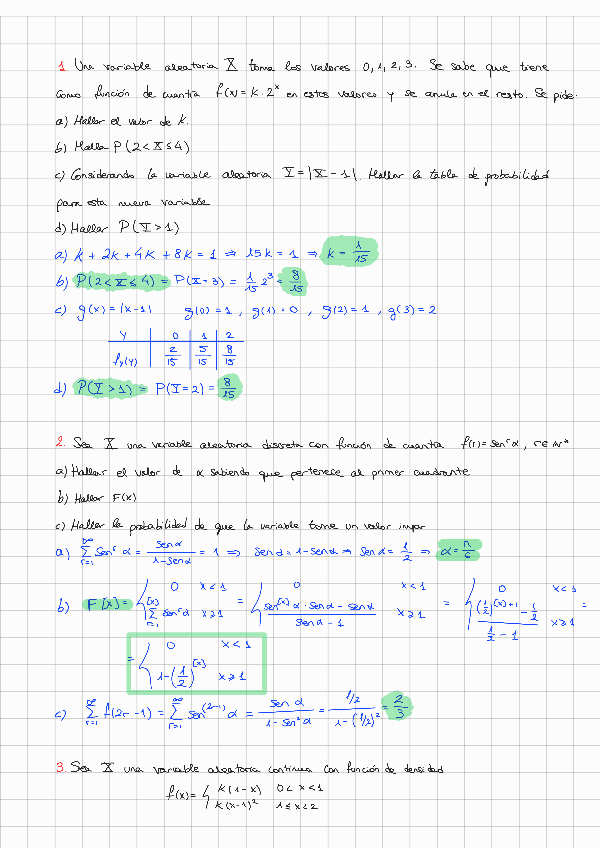 1. Una variable aleatoria X toma los valores 0, 1, 2, 3. Se sabe que tiene
como función de cuantía f(x) = k · 2^x en estos valores y se anula en el resto. Se pide:
a) Hallar el valor de k.
b) Halla P(2 < X ≤ 4)
c) Considerando la variable aleatoria Y = |X - 1|. Hallar la tabla de probabilidad
para esta nueva variable
d) Hallar P(Y > 1)
a) k + 2k + 4k + 8k = 1 ⇒ 15k = 1 ⇒ k = 1/15
b) P(2 < X ≤ 4) = P(X = 3) = 1/15 2^3 = 8/15
c) g(x) = |x - 1| g(0) = 1, g(1) = 0, g(2) = 1, g(3) = 2
Y | 0 | 1 | 2
fy(y) | 2/15 | 5/15 | 8/15
d) P(Y > 1) = P(Y = 2) = 8/15
2. Sea X una variable aleatoria discreta con función de cuantía f(r) = sen^r α, r ∈ N*
a) Hallar el valor de α sabiendo que pertenece al primer cuadrante
b) Hallar F(x)
c) Hallar la probabilidad de que la variable tome un valor impar
a) ∑_{r=1}^{∞} sen^r α = sen α / (1 - sen α) = 1 ⇒ sen α = 1 - sen α ⇒ sen α = 1/2 ⇒ α = π/6
b) F[x] = { 0 x < 1 ; ∑_{r=1}^{[x]} sen^r α x ≥ 1 = { 0 x < 1 ; (sen^[x] α · sen α - sen α) / (sen α - 1) x ≥ 1 = { 0 x < 1 ; ((1/2)^([x]+1) - 1/2) / (1/2 - 1) x ≥ 1 =
= { 0 x < 1 ; 1 - (1/2)^[x] x ≥ 1
c) ∑_{r=1}^{∞} f(2r - 1) = ∑_{r=1}^{∞} sen^(2r-1) α = sen α / (1 - sen² α) = (1/2) / (1 - (1/2)²) = 2/3
3. Sea X una variable aleatoria continua con función de densidad
f(x) = { k(1 - x) 0 < x < 1
k(x - 1)² 1 ≤ x < 2